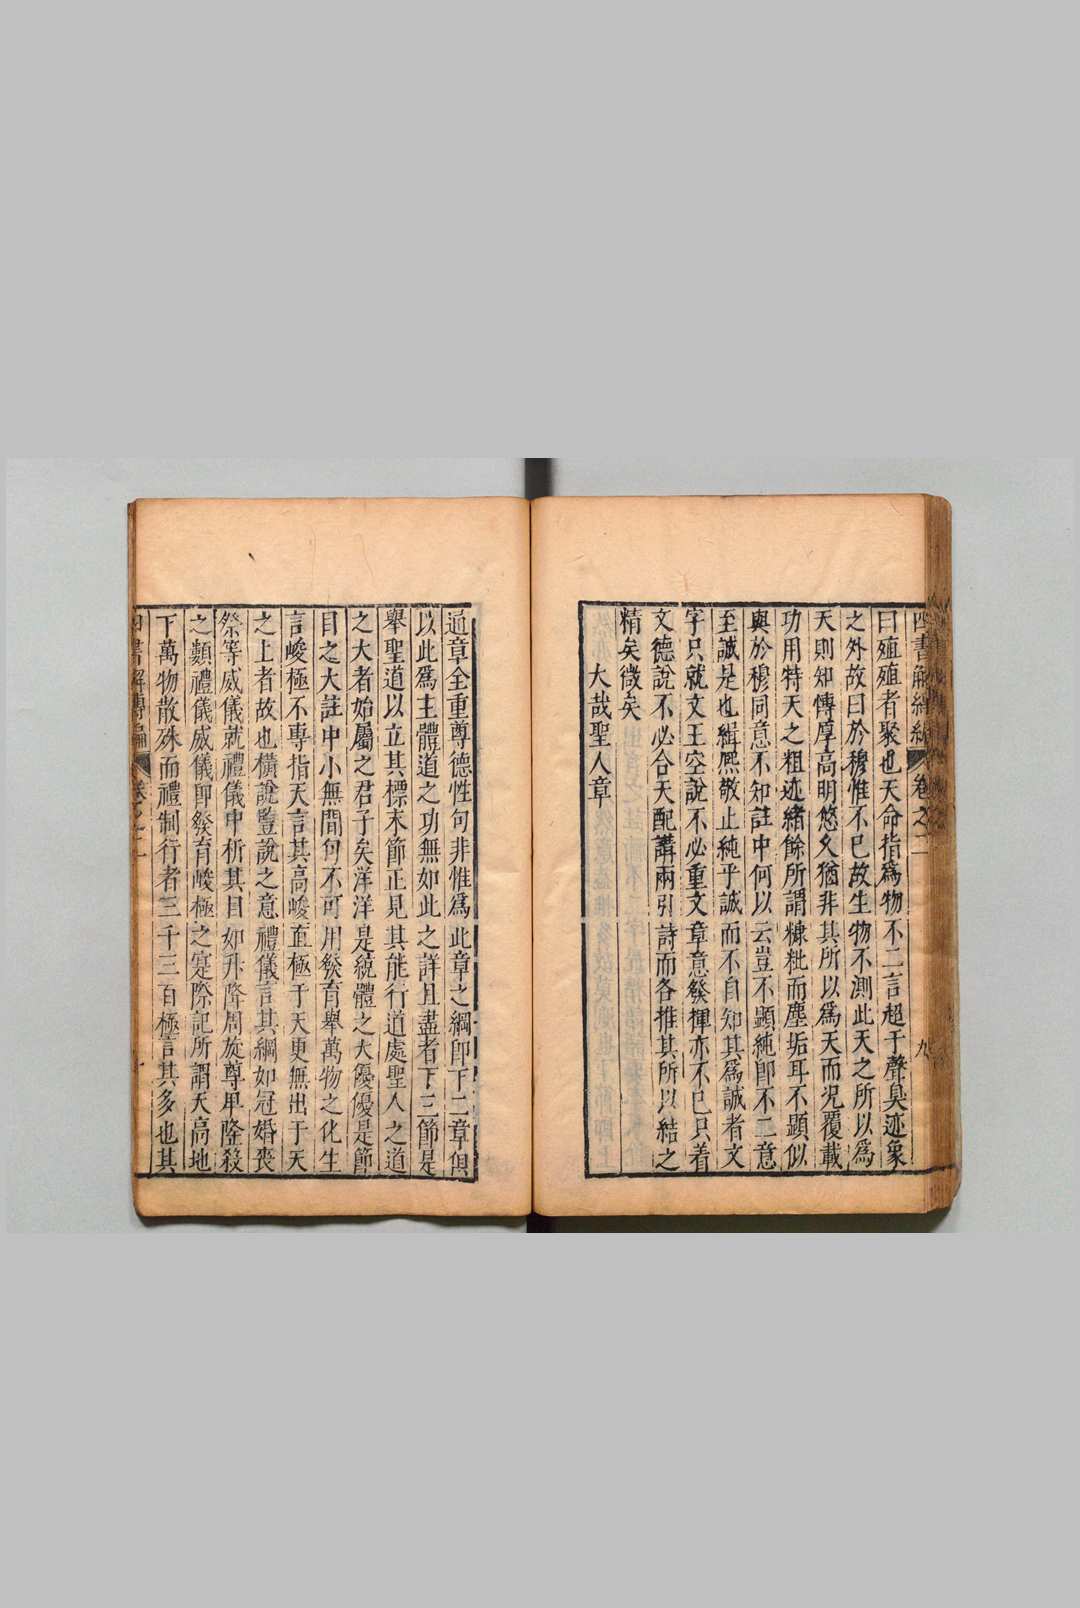 曰殖殖者聚也天命指爲物不二言超于聲臭迹象
之外故曰於穆惟不已故生物不測此天之所以爲
天則知慱厚高明悠久猶非其所以爲天而况覆載
功用特天之粗迹緒餘所謂糠粃而塵垢耳不顯似
與於穆同意不知註中何以云豈不顯純卽不二意
至誠是也緝熈敬止純乎誠而不自知其爲誠者文
字只就文王空說不必重文章意發揮亦不已只着
文德說不必合天配講兩引詩而各推其所以結之
精矣微矣
大哉聖人章
通章全重尊德性句非惟爲此章之綱卽下二章俱
以此爲主體道之功無如此之詳且盡者下三節是
舉聖道以立其標末節正見其能行道處聖人之道
之大者始屬之君子矣洋洋是統體之大優優是節
目之大註中小無間句不可用發育舉萬物之化生
言峻極不專指天言其高峻直極于天更無出于天
之上者故也橫說豎說之意禮儀言其綱如冠婚喪
祭等威儀就禮儀中析其目如升降周旋尊卑隆殺
之類禮儀威儀卽發育峻極之寔際記所謂天高地
下萬物散殊而禮制行者三千三百極言其多也其